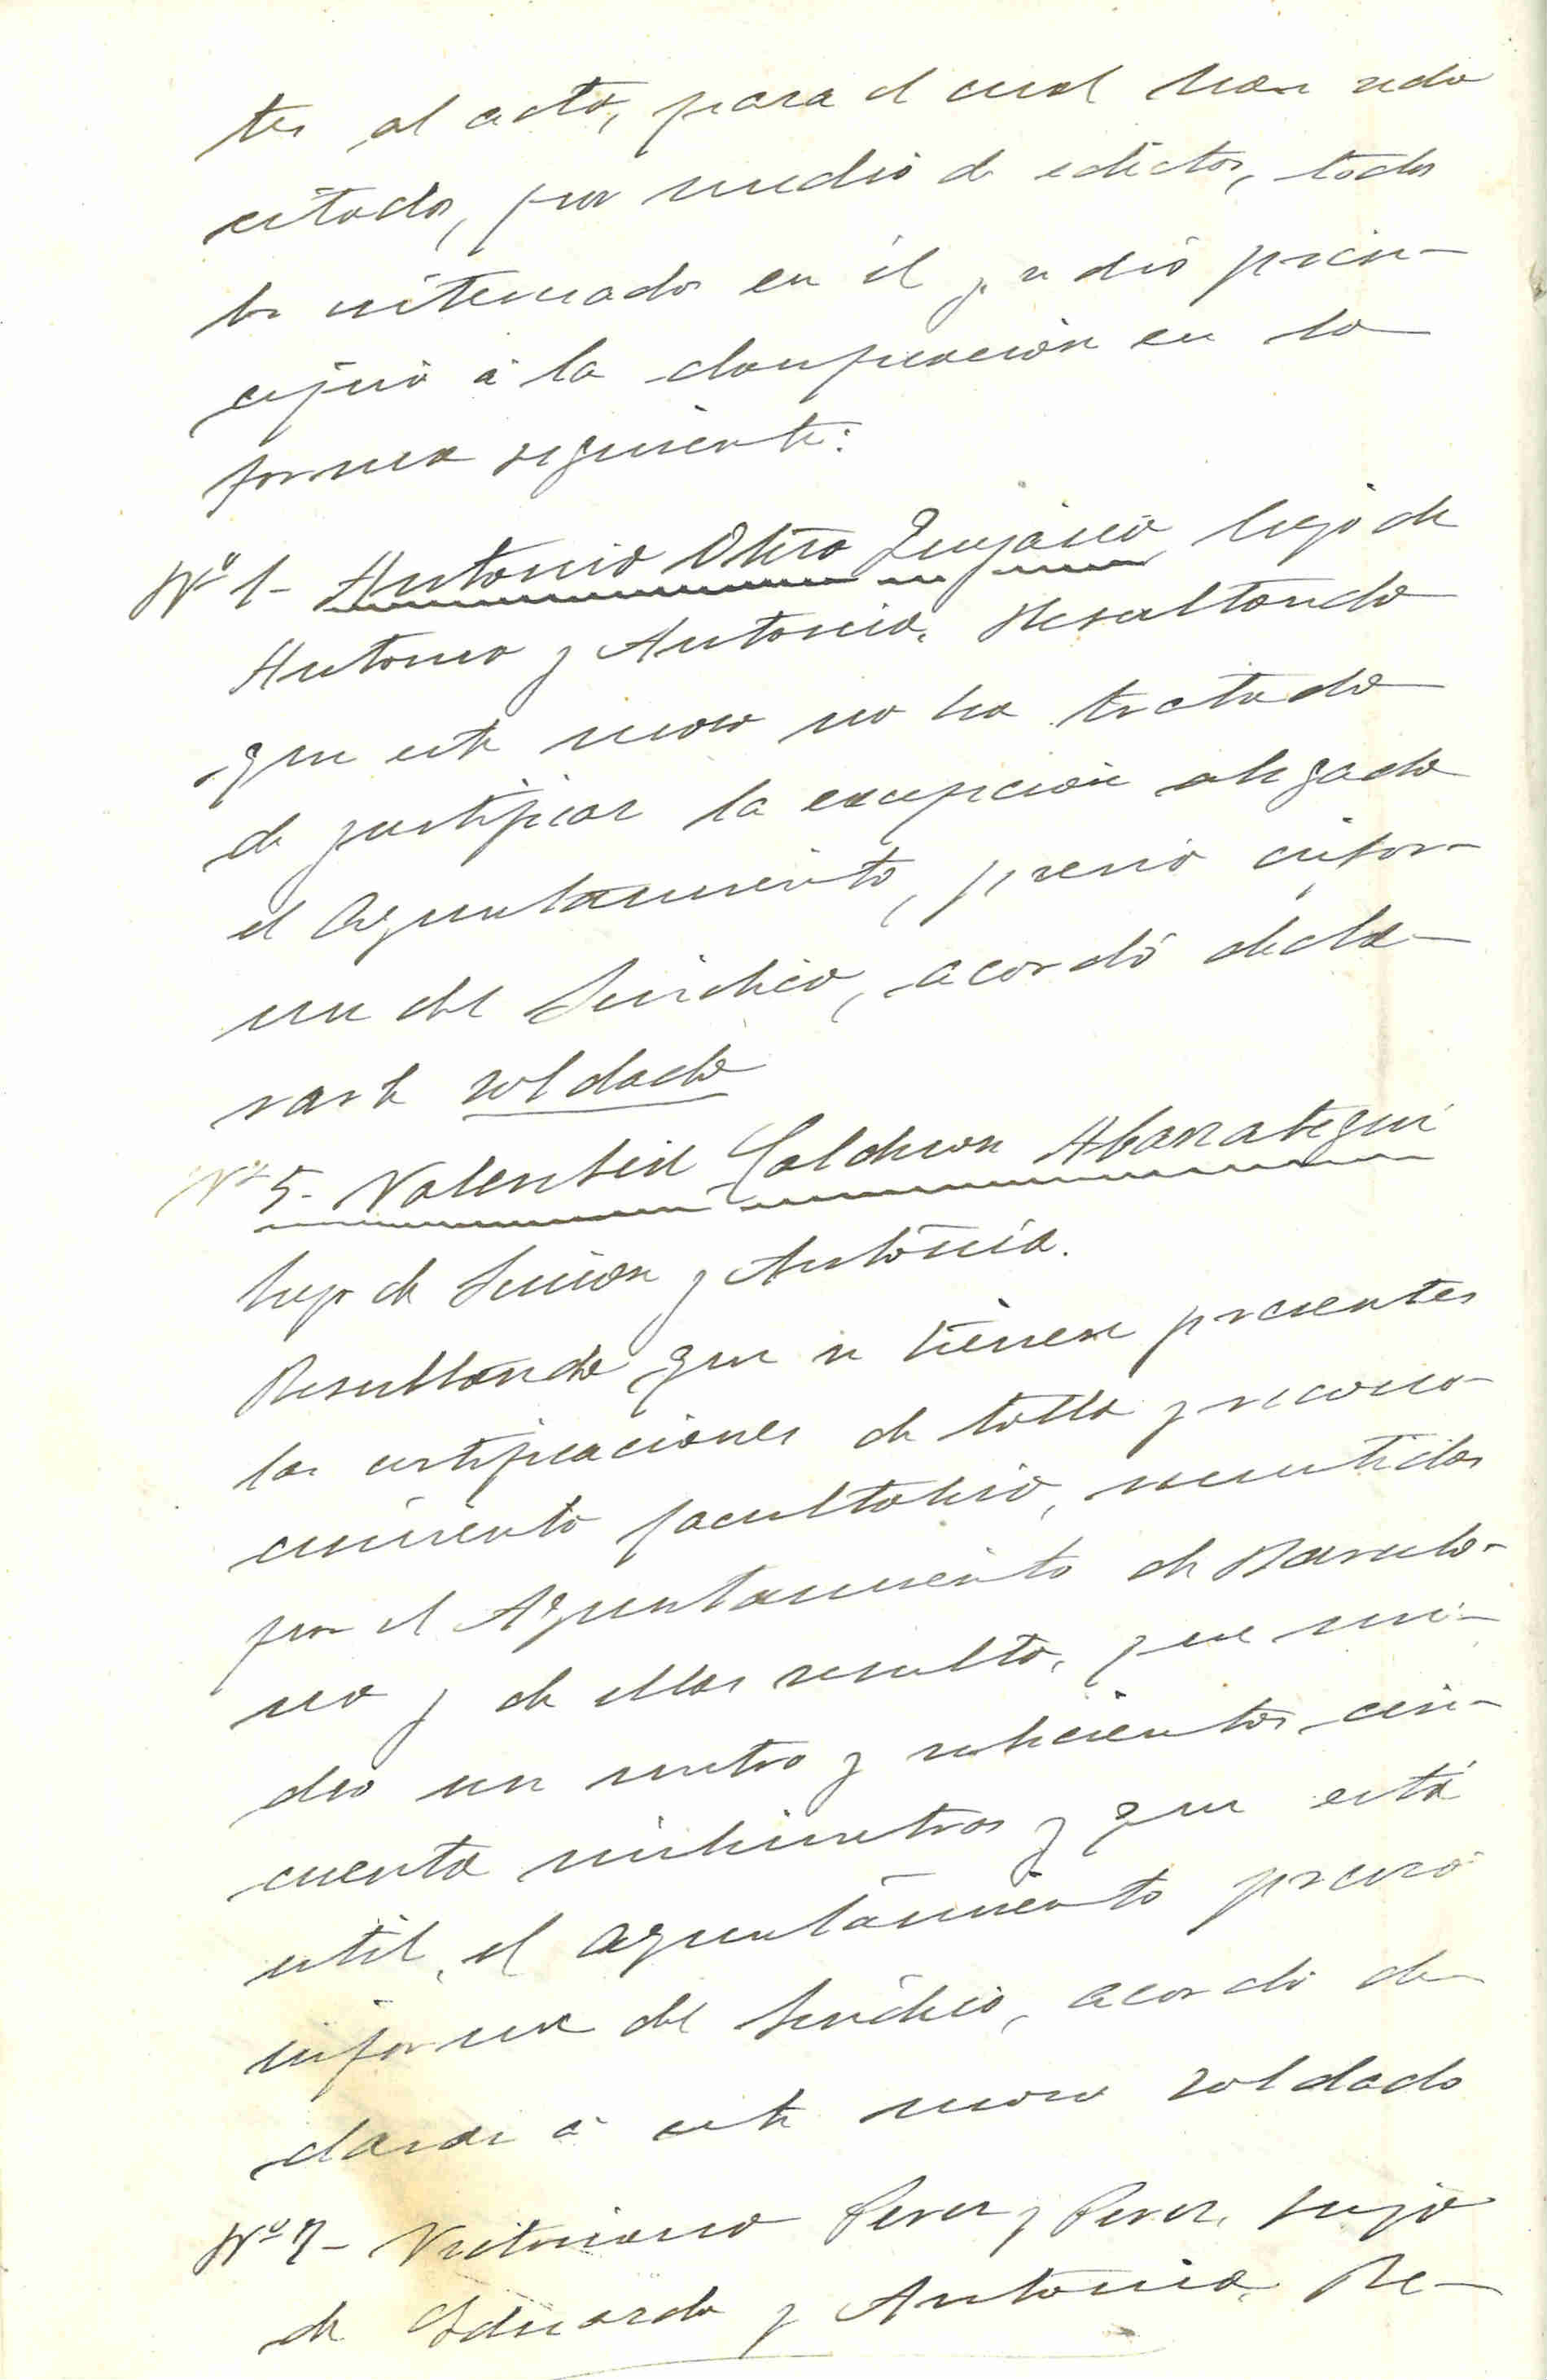 tes al acto, para el cual han sido
citados, por medio de edictos, todos
los interesados en él y se dió prin-
cipio á la clasificación en la
forma siguiente:
Nº 1- Antonio Otero hijo de
Antonio y Antonia. Resultando
que este mozo no ha tratado
de justificar la excepción alegada
el Ayuntamiento, previo infor-
me del Sindico, acordó decla-
rarle soldado
Nº 5- Valentin Calderon Abarrategui
hijo de Simon y Antonia.
Resultando que se tienen presentes
las certificaciones de talla y recono-
cimiento facultativo, remitidas
por el Ayuntamiento de Barcelo-
na y de ellas resulta, que mi-
dio un metro y seiscientos cin-
cuenta milimetros y que está
util, el Ayuntamiento previo
informe del Sindico, acordó de-
clarar á este mozo soldado
Nº 7- Victoriano Perez y Perez, hijo
de Eduardo y Antonia. Re-